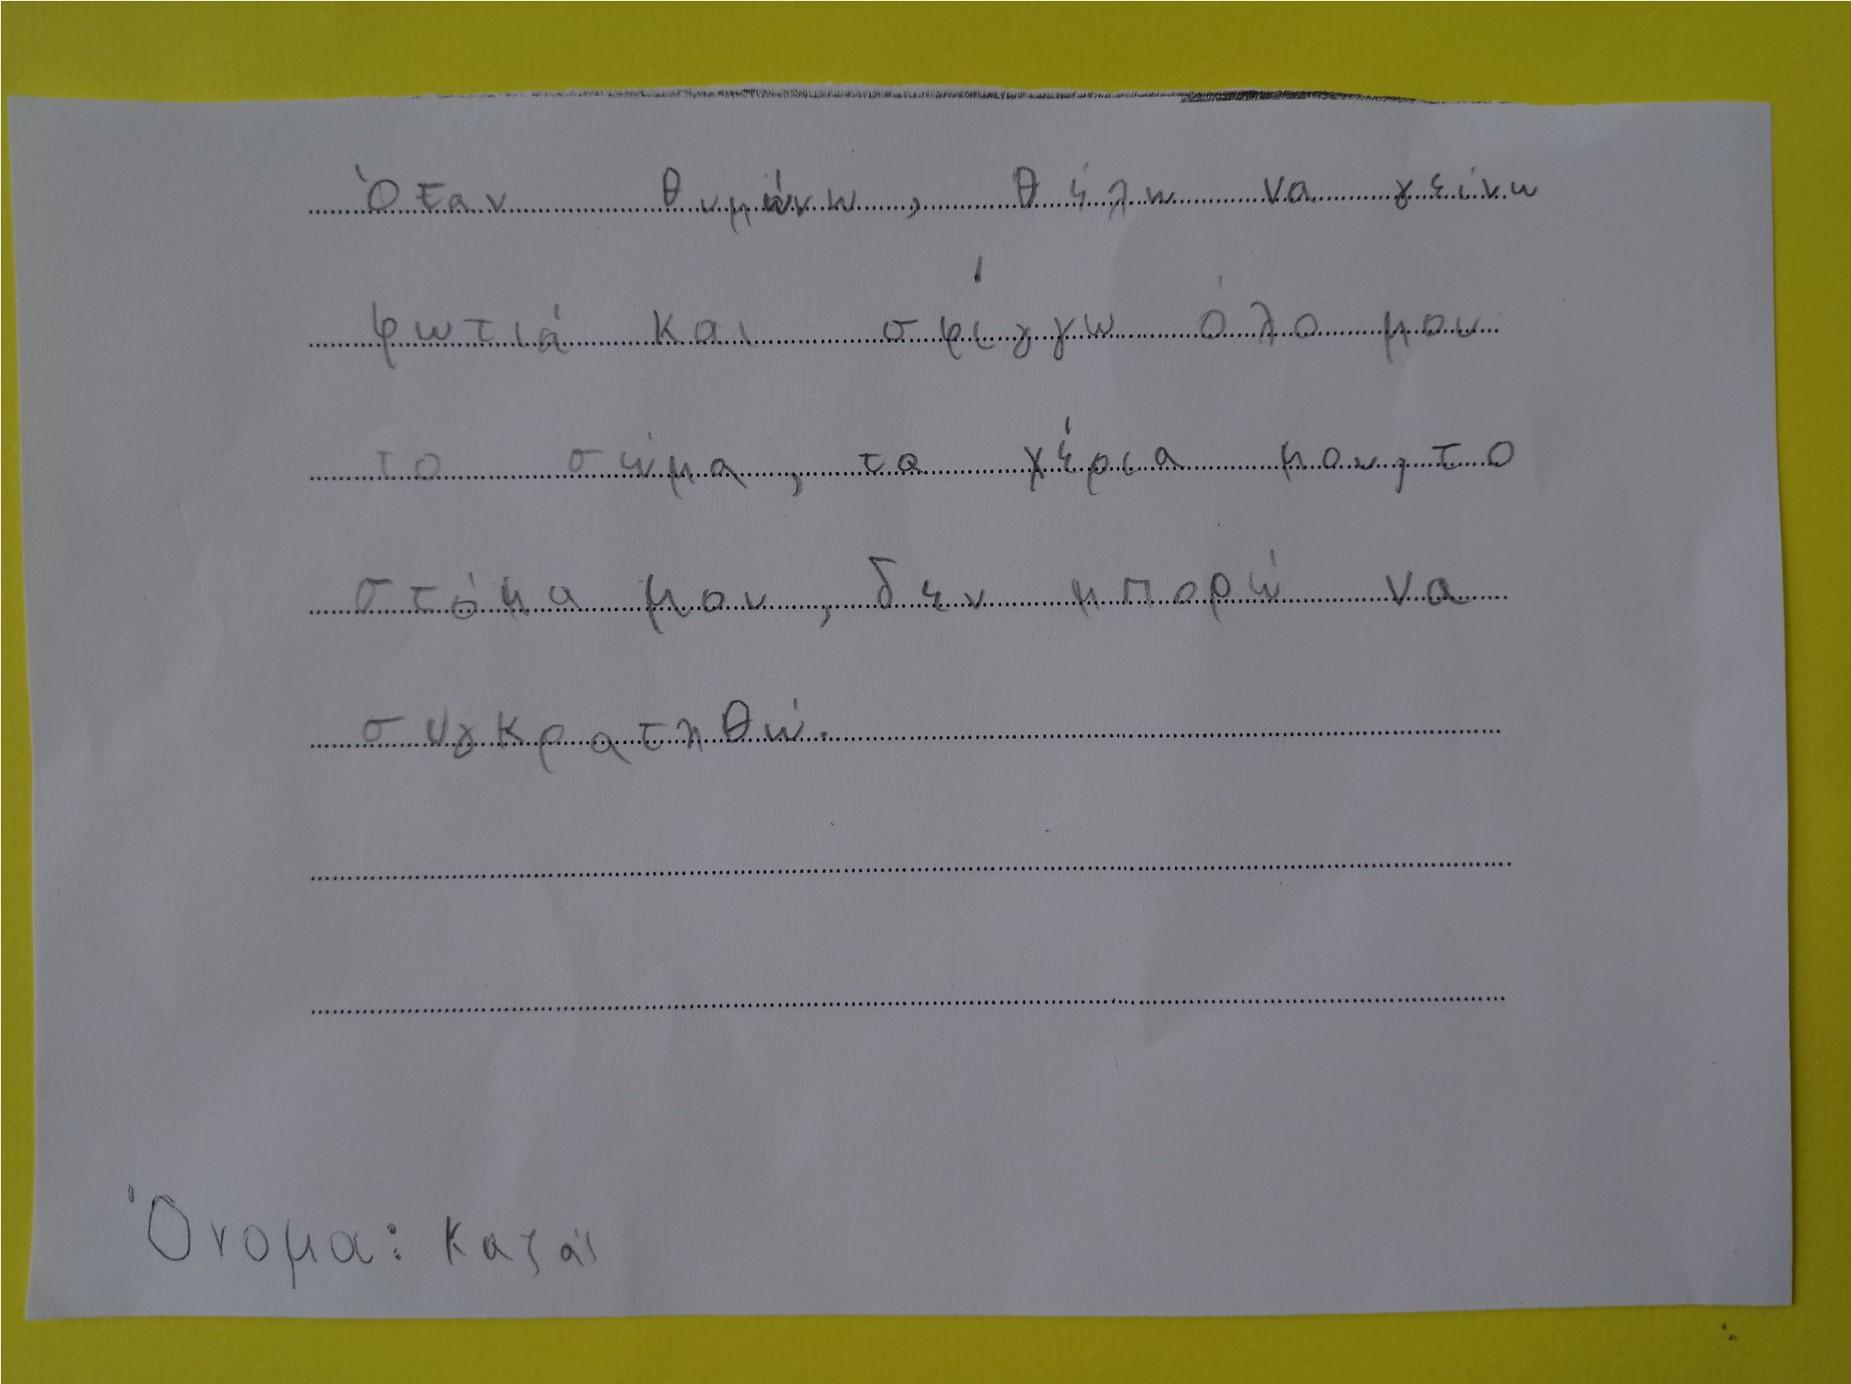 Όταν θυμώνω, θέλω να γείνω
φωτιά και σφίγγω όλο μου
το σώμα, τα χέρια μου, το
στόμα μου, δεν μπορώ να
συγκρατηθώ.
Όνομα: